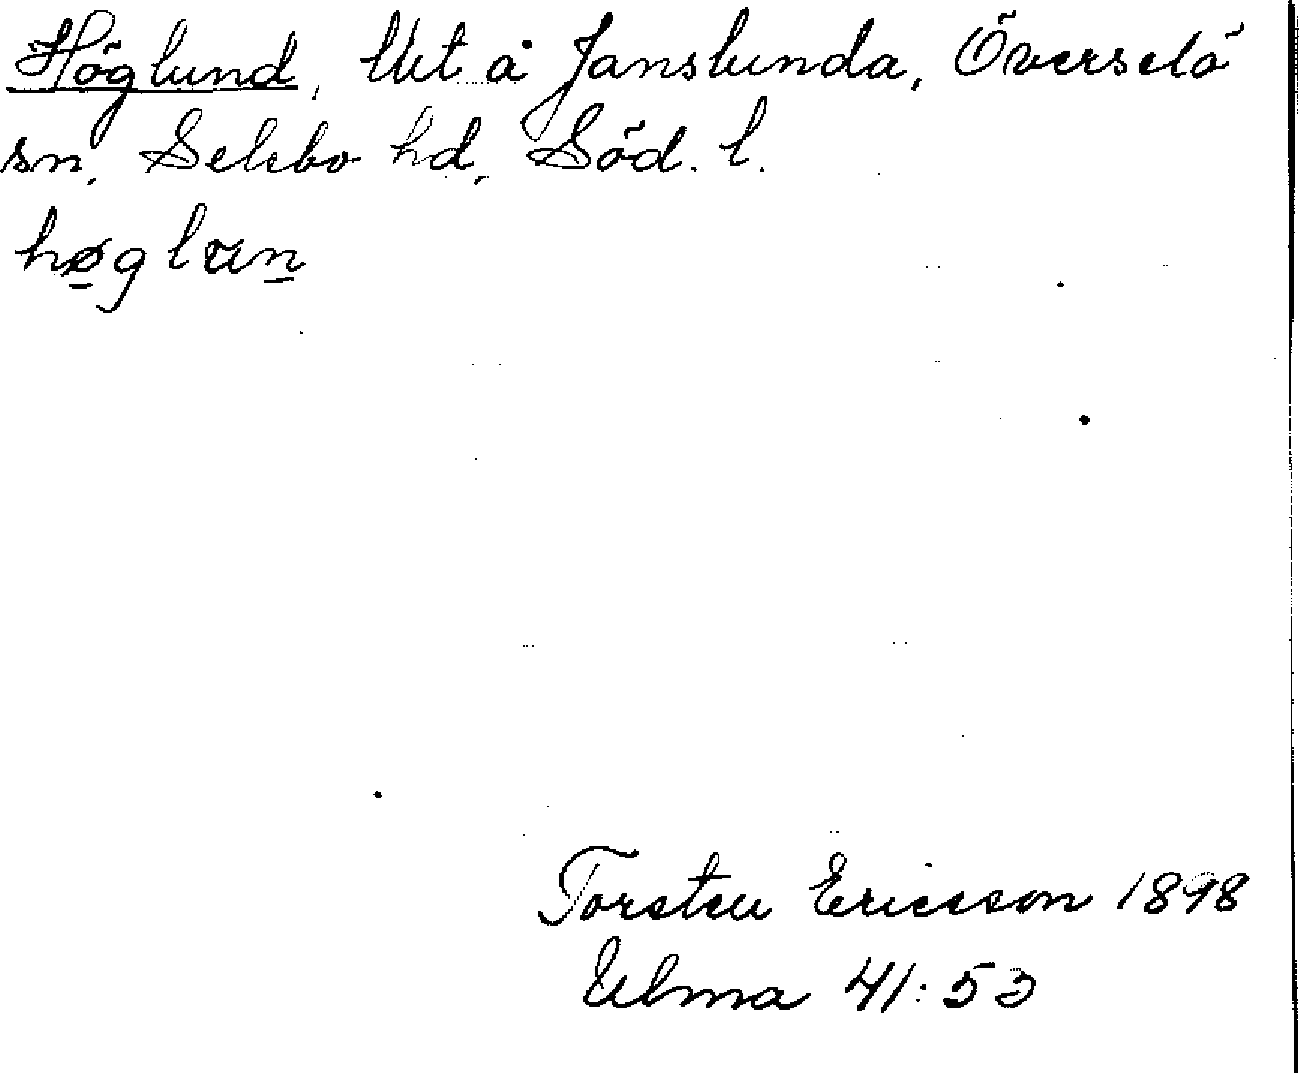 Höglund, Ut å Janslunda, Överselö
sn, Selebo hd, Söd. l.
høglun
Torsten Ericsson 1898
Ulma 41:53